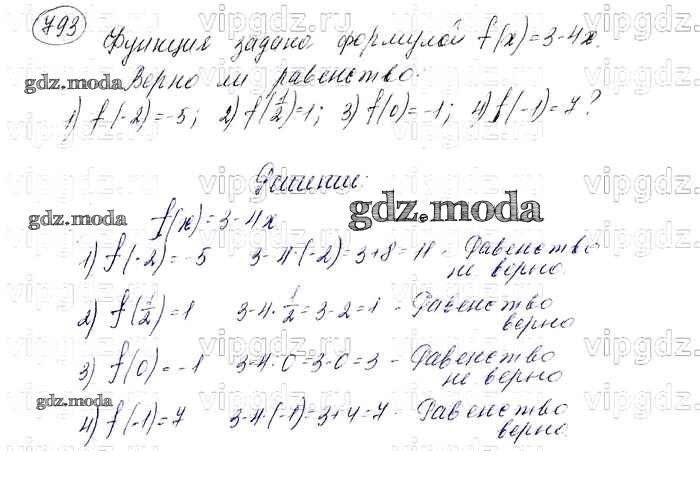 793
Функция задана формулой f(x)=3-4x.
gdz.moda Верно ли равенство:
1) f(-2)=-5; 2) f(1/2)=1; 3) f(0)=-1; 4) f(-1)=7?
Решение:
gdz.moda
gdz.moda f(x)=3-4x
1) f(-2)=-5 3-4·(-2)=3+8=11 - Равенство
не верно.
2) f(1/2)=1 3-4·1/2=3-2=1 - Равенство
верно
3) f(0)=-1 3-4·0=3-0=3 - Равенство
не верно.
gdz.moda
4) f(-1)=7 3-4·(-1)=3+4=7 - Равенство
верно.
vipgdz.ru